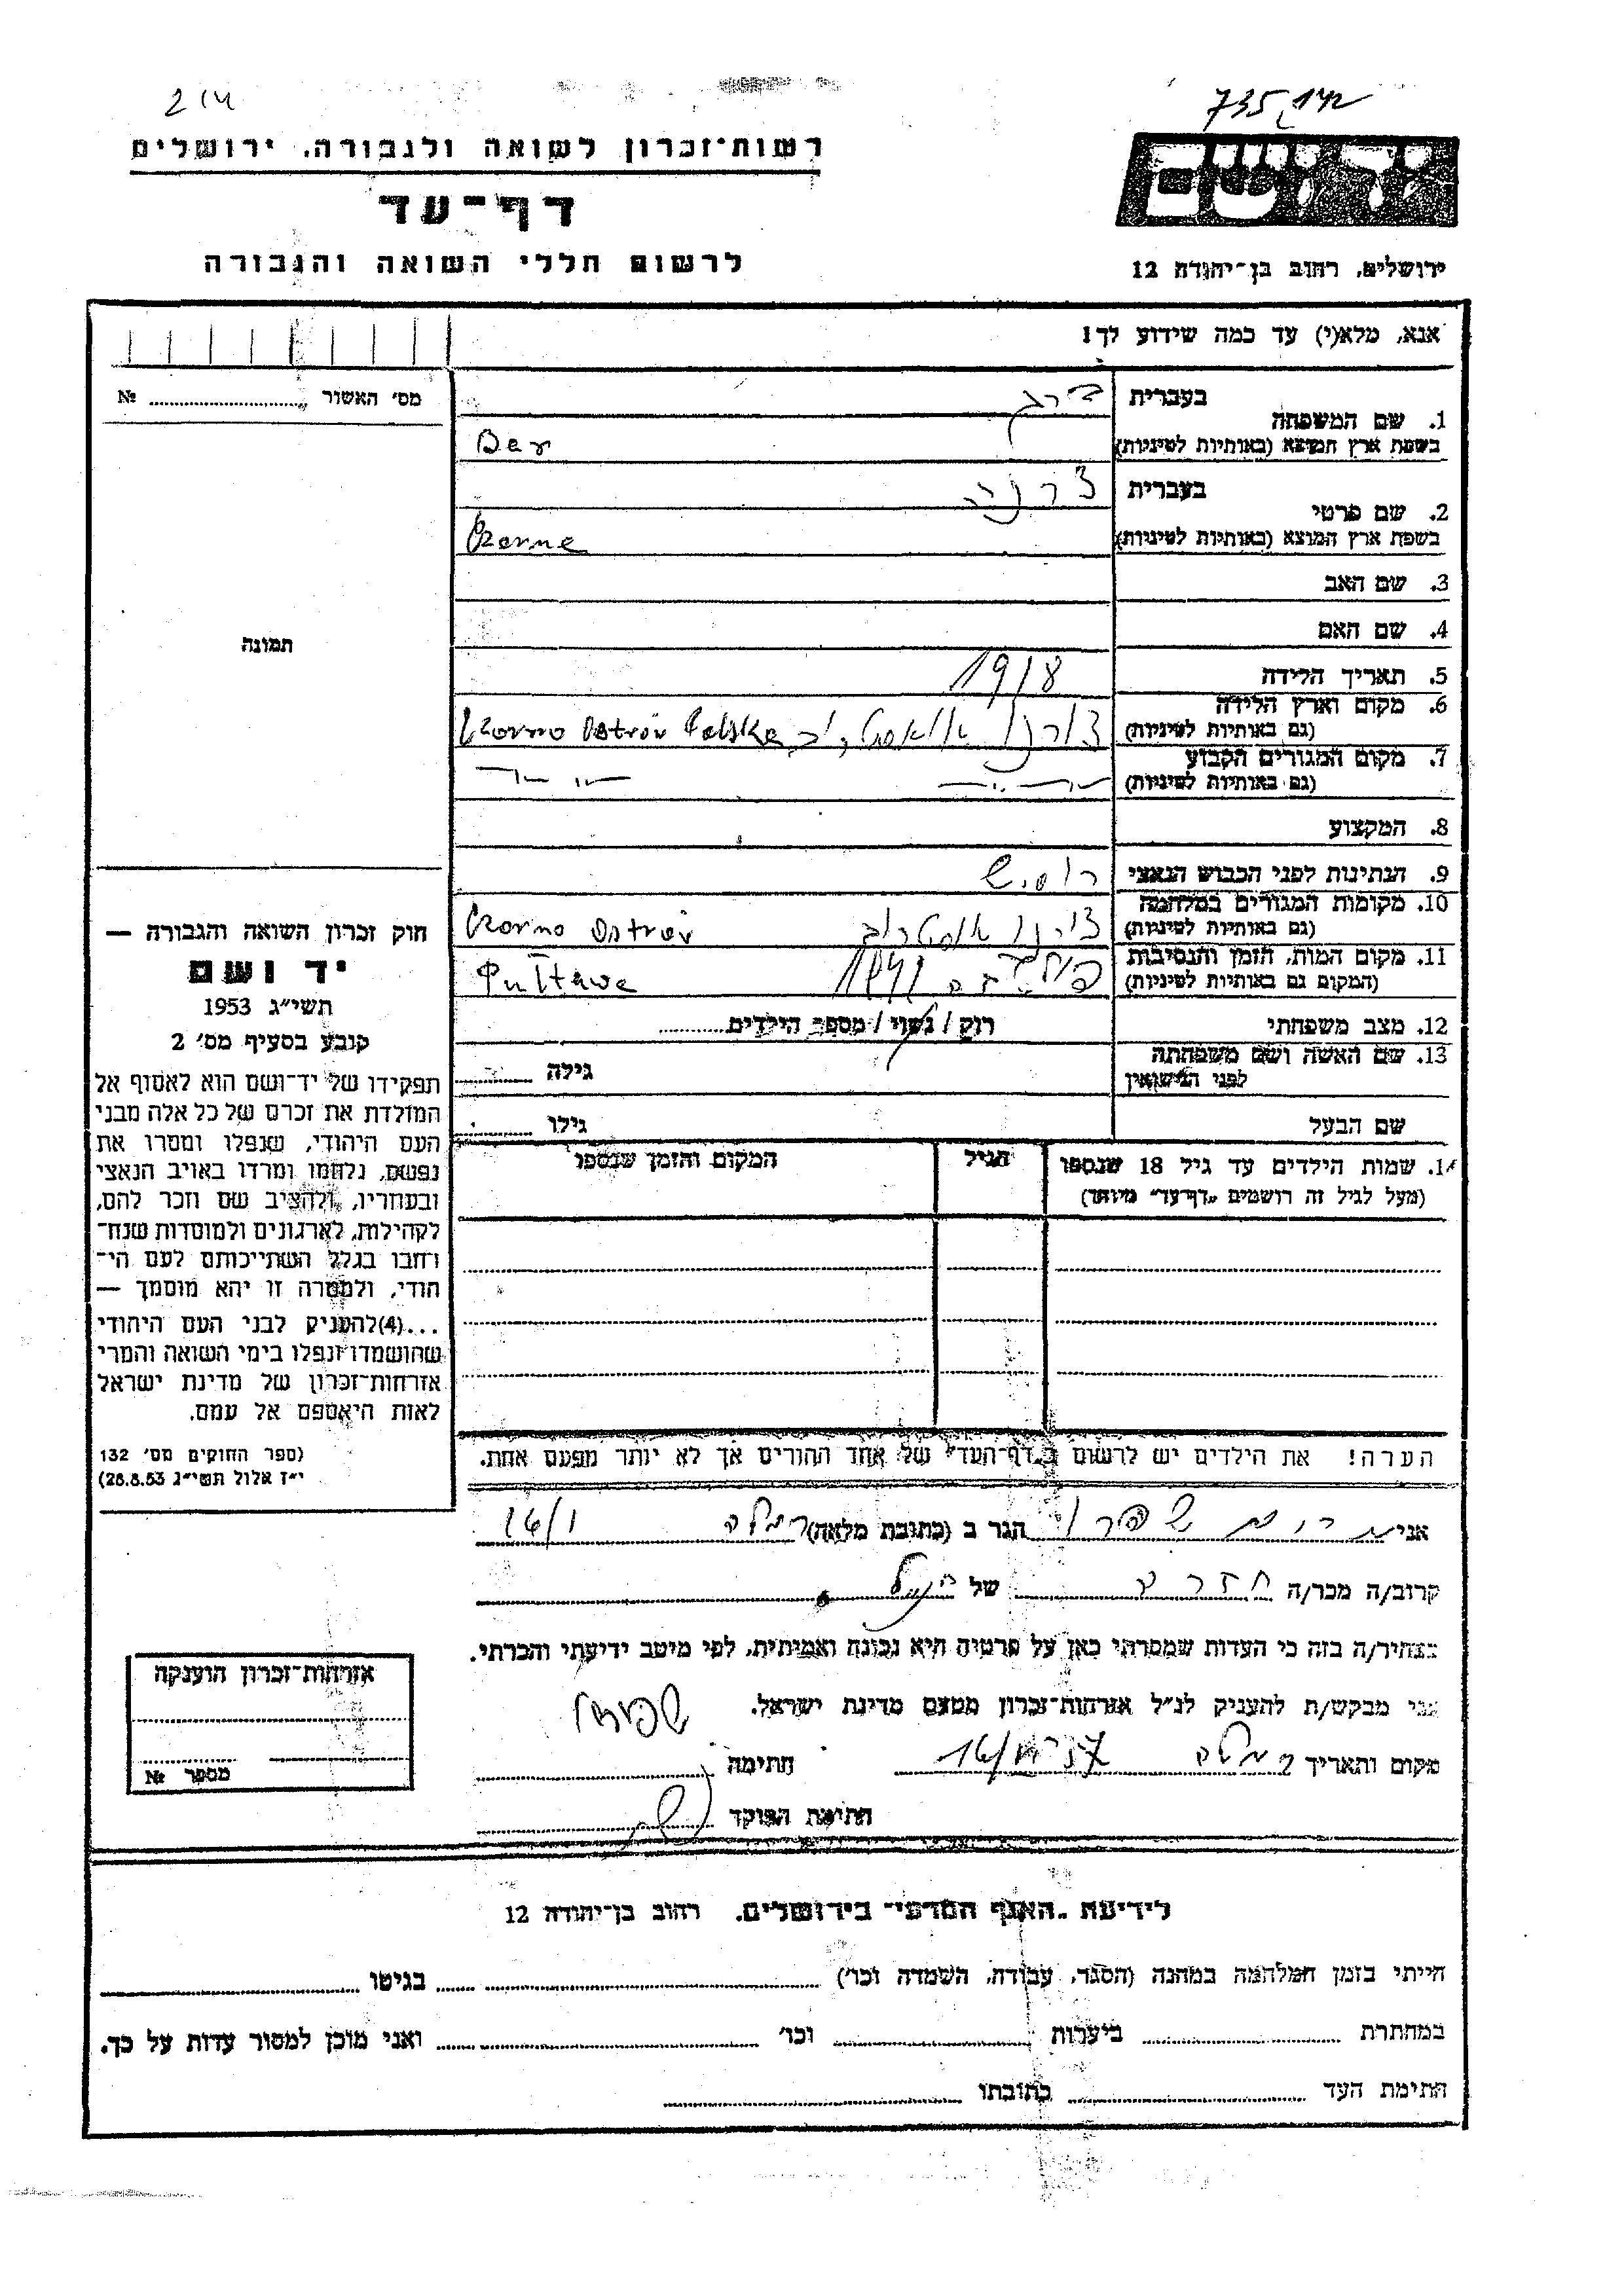 214
735/142
רשות־זכרון לשואה ולגבורה, ירושלים
דף־עד
לרשום חללי השואה והגבורה
יד ושם
ירושלים, רחוב בן־יהודה 12
אנא, מלא(י) עד כמה שידוע לך!
מס' האשור № 
תמונה
חוק זכרון השואה והגבורה —
יד ושם
תשי״ג 1953
קובע בסעיף מס' 2
תפקידו של יד־ושם הוא לאסוף אל
המולדת את זכרם של כל אלה מבני
העם היהודי, שנפלו ומסרו את
נפשם, נלחמו ומרדו באויב הנאצי
ובעוזריו, ולהציב שם וזכר להם,
לקהילות, לארגונים ולמוסדות שנח־
רבו בגלל השתייכותם לעם הי־
הודי, ולמטרה זו יהא מוסמך —
...(4)להעניק לבני העם היהודי
שהושמדו ונפלו בימי השואה והמרי
אזרחות־זכרון של מדינת ישראל
לאות היאספם אל עמם.
(ספר החוקים מס' 132
י״ז אלול תשי״ג 28.8.53)
1. שם המשפחה
בעברית
בשפת ארץ המוצא (באותיות לטיניות) Ber
2. שם פרטי
בעברית
בשפת ארץ המוצא (באותיות לטיניות)
3. שם האב
4. שם האם
5. תאריך הלידה 1918
6. מקום וארץ הלידה
(גם באותיות לטיניות) Ostrów Polska
7. מקום המגורים הקבוע
(גם באותיות לטיניות)
8. המקצוע
9. הנתינות לפני הכבוש הנאצי
10. מקומות המגורים במלחמה
(גם באותיות לטיניות) Ostrów
11. מקום המות, הזמן והנסיבות
(המקום גם באותיות לטיניות) 1941 Pułtawa
12. מצב משפחתי רוק / נשוי / מספר הילדים
13. שם האשה ושם משפחתה
לפני הנישואין גילה
שם הבעל גילו
14. שמות הילדים עד גיל 18 שנספו הגיל המקום והזמן שנספו
(מעל לגיל זה רושמים „דף־עד״ מיוחד)
הערה! את הילדים יש לרשום ב„דף־העד״ של אחד ההורים אך לא יותר מפעם אחת.
אני הגר ב (כתובת מלאה) רמלה
קרוב/ה מכר/ה של
מצהיר/ה בזה כי העדות שמסרתי כאן על פרטיה היא נכונה ואמיתית, לפי מיטב ידיעתי והכרתי.
אני מבקש/ת להעניק לנ״ל אזרחות־זכרון מטעם מדינת ישראל.
מקום ותאריך רמלה חתימה
חתימת הפוקד
אזרחות־זכרון הוענקה
מספר №
לידיעת „האגף המדעי״ בירושלים, רחוב בן־יהודה 12
הייתי בזמן המלחמה במחנה (הסגר, עבודה, השמדה וכו') בגיטו
במחתרת ביערות וכו' ואני מוכן למסור עדות על כך.
חתימת העד כתובתו